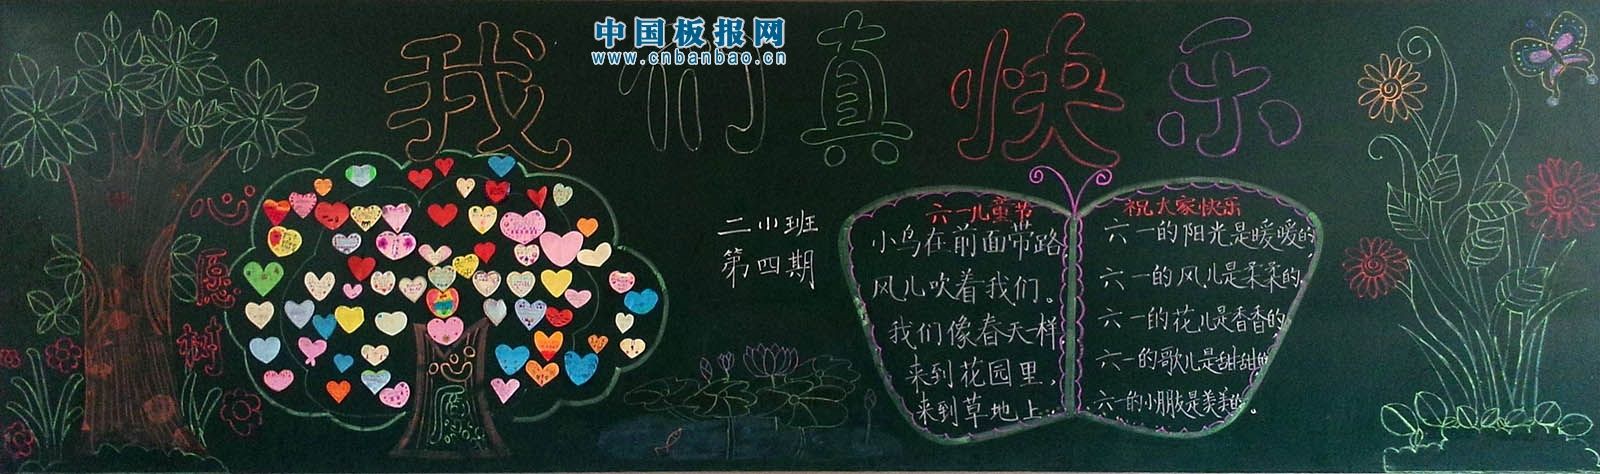 中国板报网
www.cnbanbao.cn
我们真快乐
心愿树
二小班
第四期
六一儿童节
小鸟在前面带路,
风儿吹着我们。
我们像春天一样
来到花园里,
来到草地上。
祝大家快乐
六一的阳光是暖暖的,
六一的风儿是柔柔的,
六一的花儿是香香的,
六一的歌儿是甜甜的,
六一的小朋友是美美的。